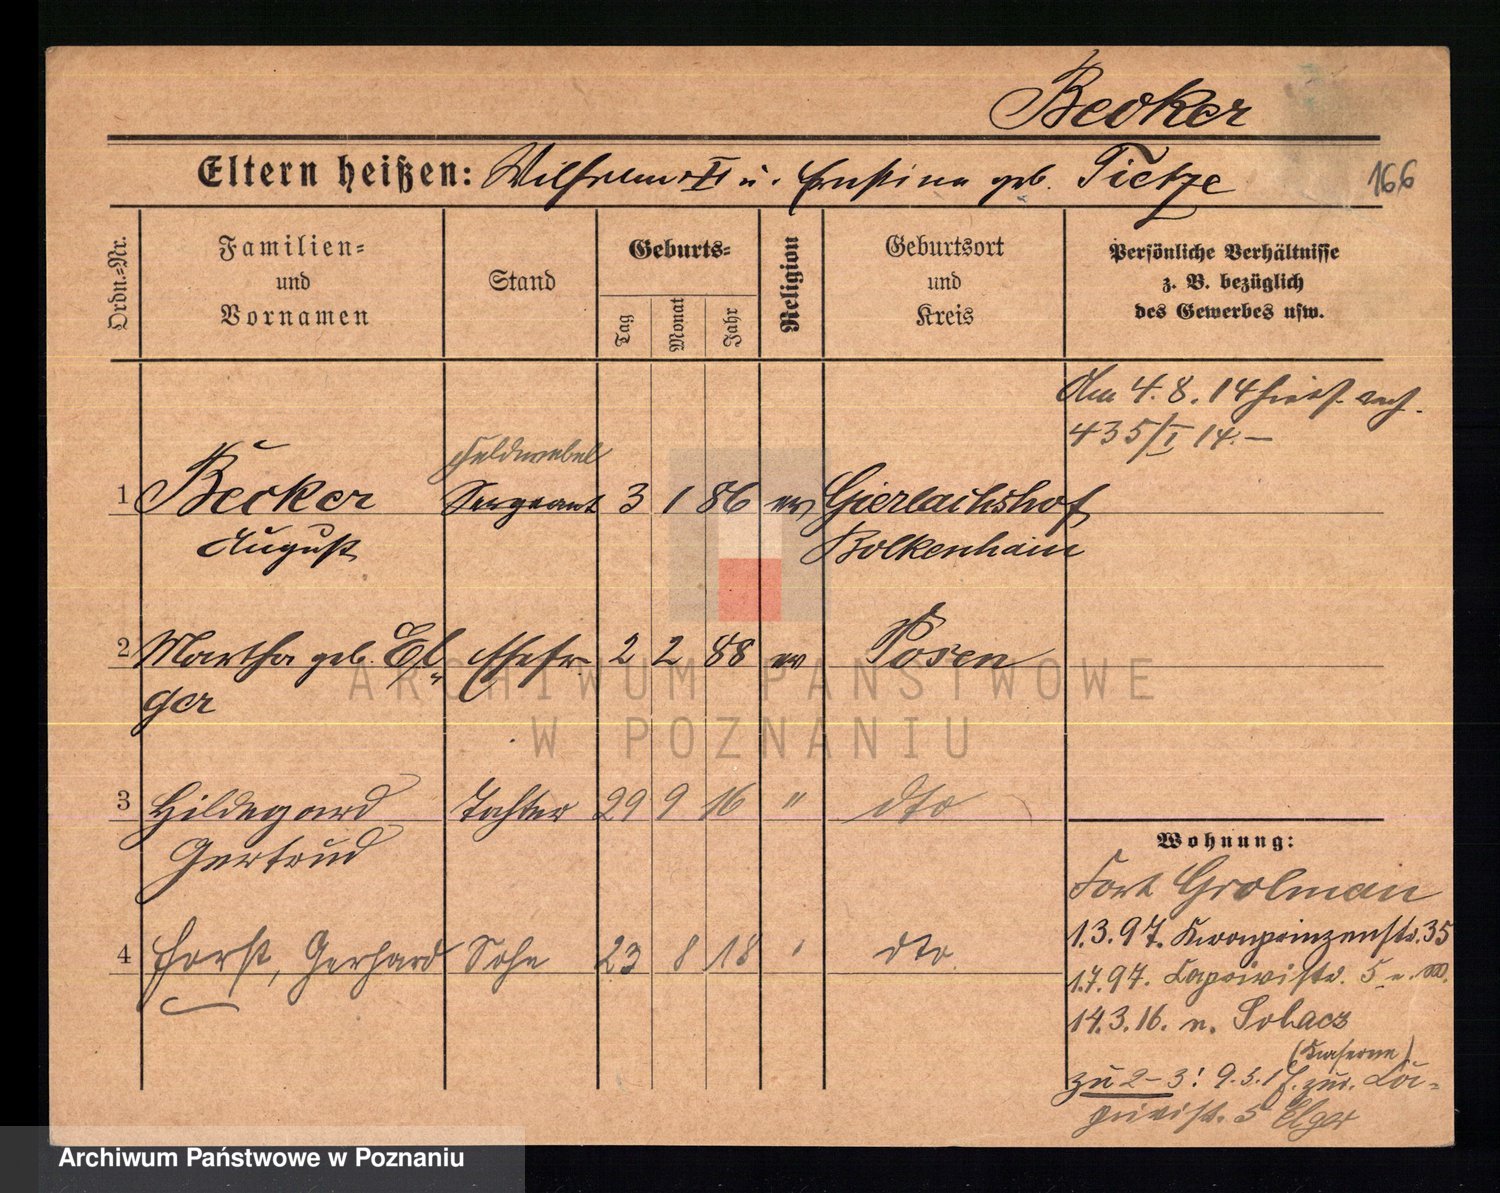 Becker
Eltern heißen: Wilhelm II u. Ernstine geb. Tietze
166
Ordn.=Nr.
Familien=
und
Vornamen
Stand
Geburts=
Tag
Monat
Jahr
Religion
Geburtsort
und
Kreis
Persönliche Verhältnisse
z. B. bezüglich
des Gewerbes usw.
Am 4.8.14 hies.
435/I 14.—
Feldwebel
1 Becker Sergeant 3 1 86 ev Gierlachshof
August Bolkenhain
2 Martha geb. El= Ehefr 2 2 88 ev Posen
ger
3 Hildegard Tochter 29 9 16 " dto
Gertrud
4 Horst, Gerhard Sohn 23 8 18 ' dto
Wohnung:
Fort Grolman
1.3.97. Kronprinzenstr. 35
1.7.97. 5
14.3.16. n. Solacz
(Kaserne)
zu 2–3! 9.5.17. zur.
5 Elger
ARCHIWUM PAŃSTWOWE
W POZNANIU
Archiwum Państwowe w Poznaniu